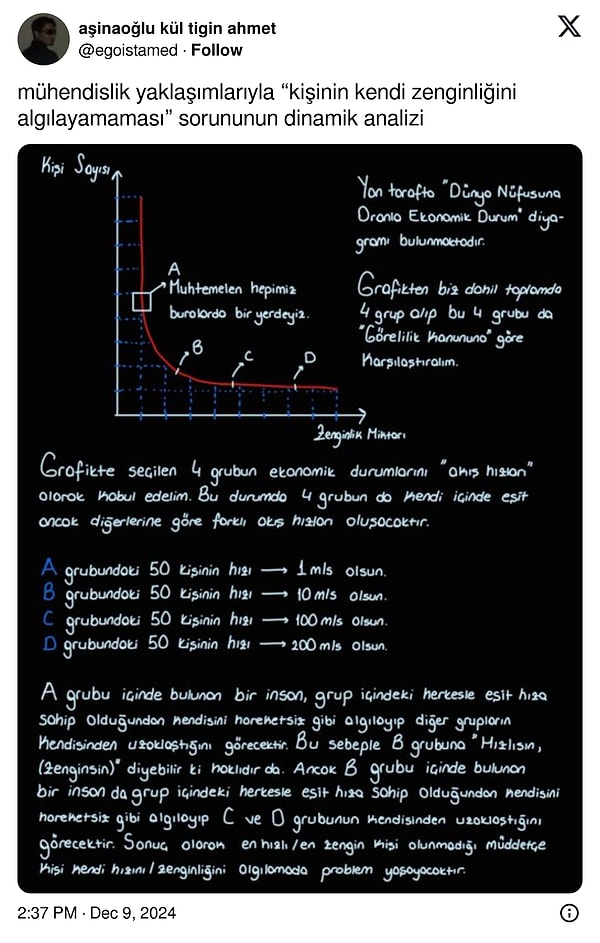 aşinaoğlu kül tigin ahmet
@egoistamed · Follow
mühendislik yaklaşımlarıyla “kişinin kendi zenginliğini
algılayamaması” sorununun dinamik analizi
Kişi Sayısı
A
Muhtemelen hepimiz
buralarda bir yerdeyiz.
B
C
D
Zenginlik Miktarı
Yan tarafta "Dünya Nüfusuna
Oranla Ekonomik Durum" diya-
gramı bulunmaktadır.
Grafikten biz dahil toplamda
4 grup alıp bu 4 grubu da
"Görelilik Kanununa" göre
karşılaştıralım.
Grafikte seçilen 4 grubun ekonomik durumlarını "akış hızları"
olarak kabul edelim. Bu durumda 4 grubun da kendi içinde eşit
ancak diğerlerine göre farklı akış hızları oluşacaktır.
A grubundaki 50 kişinin hızı → 1 m/s olsun.
B grubundaki 50 kişinin hızı → 10 m/s olsun.
C grubundaki 50 kişinin hızı → 100 m/s olsun.
D grubundaki 50 kişinin hızı → 200 m/s olsun.
A grubu içinde bulunan bir insan, grup içindeki herkesle eşit hıza
sahip olduğundan kendisini hareketsiz gibi algılayıp diğer grupların
kendisinden uzaklaştığını görecektir. Bu sebeple B grubuna "Hızlısın,
(zenginsin)" diyebilir ki haklıdır da. Ancak B grubu içinde bulunan
bir insan da grup içindeki herkesle eşit hıza sahip olduğundan kendisini
hareketsiz gibi algılayıp C ve D grubunun kendisinden uzaklaştığını
görecektir. Sonuç olarak en hızlı/en zengin kişi olunmadığı müddetçe
kişi kendi hızını/zenginliğini algılamada problem yaşayacaktır.
2:37 PM · Dec 9, 2024